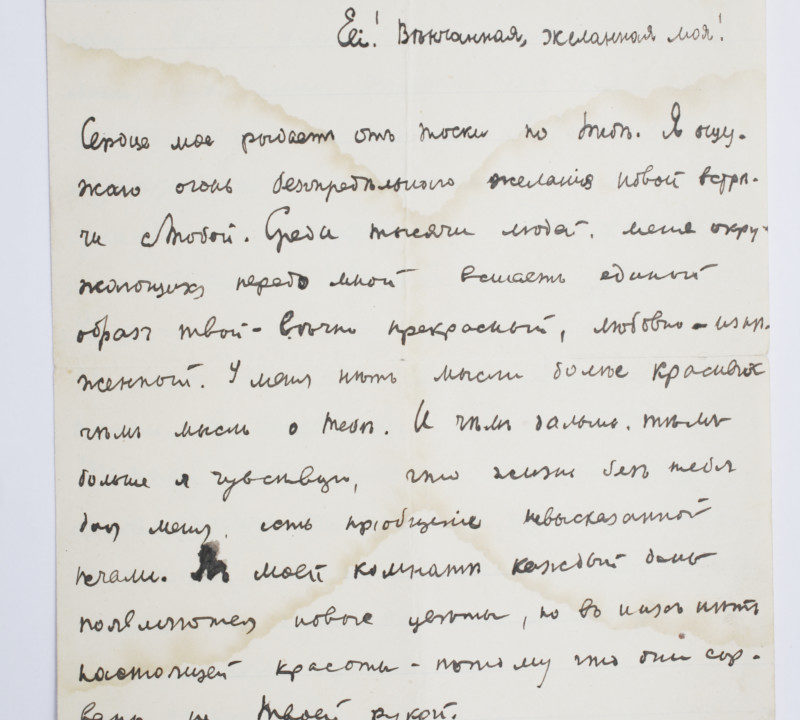 Ей! Вѣнчанная, желанная моя!
Сердце мое рыдаетъ отъ тоски по Тебѣ. Я ощу-
жаю огонь безпредѣльнаго желанія новой встрѣ-
чи с Тобой. Среди тысячи людей, меня окру-
жающихъ передо мной встаетъ единый
образъ твой - Вѣчно прекрасный, любовно-изнѣ-
женный. У меня нѣтъ мысли болѣе красивой
чѣмъ мысль о Тебѣ. И чѣмъ дальше, тѣмъ
больше я чувствую, что жизнь безъ тебя
для меня, есть пріобщеніе невысказанной
печали. Въ моей комнатѣ каждый день
появляются новые цвѣты, но въ нихъ нѣтъ
настоящей красоты - потому что они сор-
ваны не Твоей рукой.